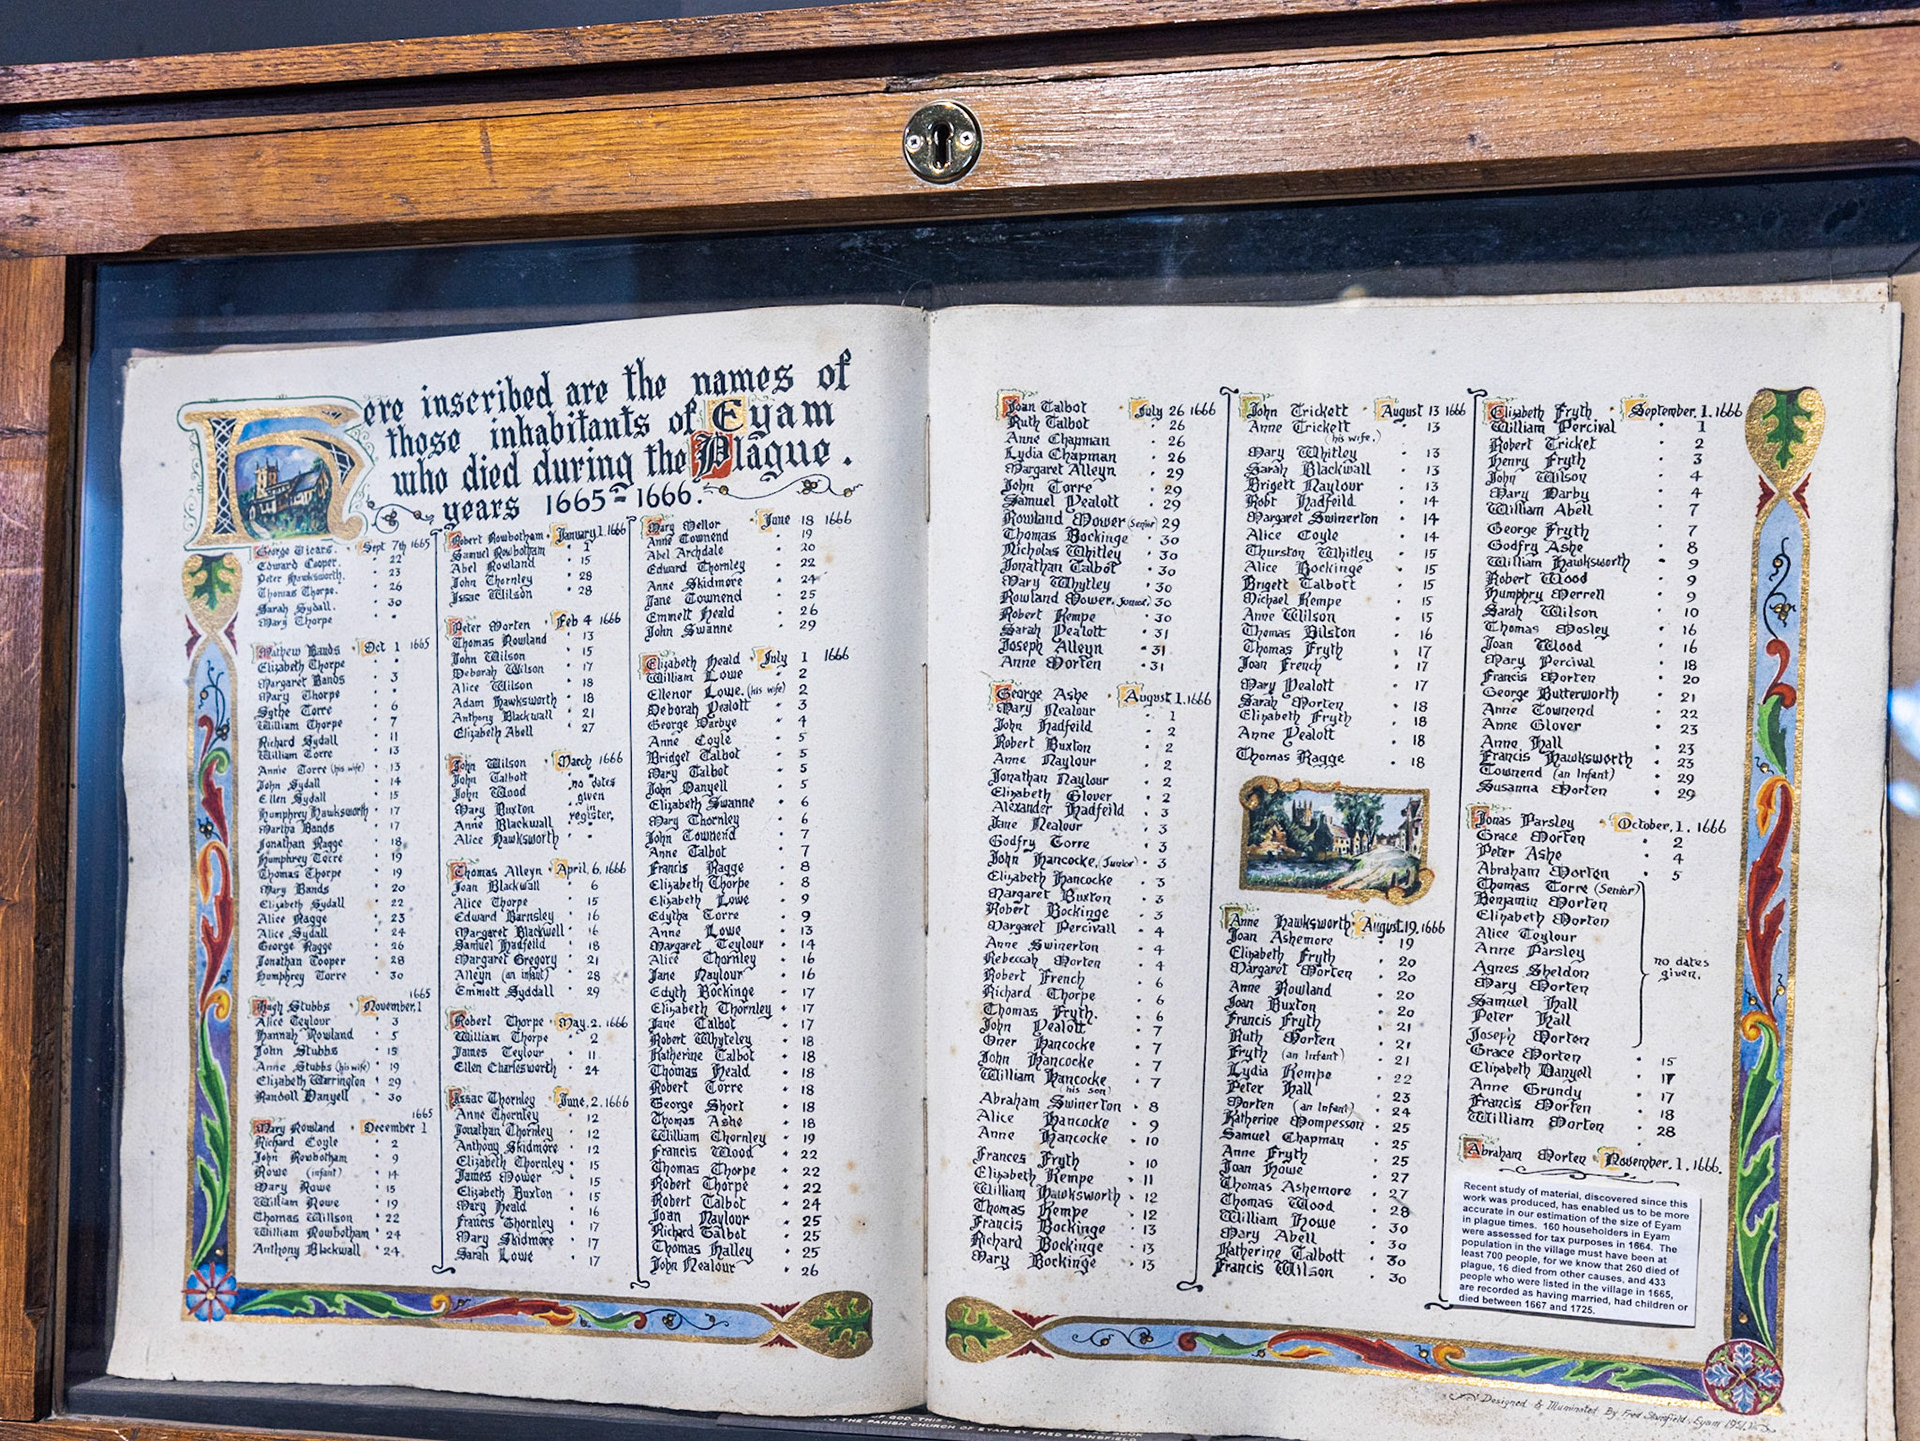 Here inscribed are the names of
those inhabitants of Eyam
who died during the Plague.
years 1665-1666.
George Vicars. Sept 7th 1665
Edward Cooper. 22
Peter Hawksworth. 23
Thomas Thorpe. 26
Sarah Sydall. 30
Mary Thorpe "
Mathew Bands Oct 1 1665
Elizabeth Thorpe "
Margaret Bands 3
Mary Thorpe "
Sythe Torre 6
William Thorpe 7
Richard Sydall 11
William Torre 13
Annie Torre (his wife) 13
John Sydall 14
Ellen Sydall 15
Humphrey Hawksworth 17
Martha Bands 17
Jonathan Ragge 18
Humphrey Torre 19
Thomas Thorpe 19
Mary Bands 20
Elizabeth Sydall 22
Alice Ragge 23
Alice Sydall 24
George Ragge 26
Jonathan Cooper 28
Humphrey Torre 30
1665
Hugh Stubbs November 1
Alice Teylour 3
Hannah Rowland 5
John Stubbs 15
Anne Stubbs (his wife) 19
Elizabeth Warrington 29
Randoll Danyell 30
1665
Mary Rowland December 1
Richard Coyle 2
John Rowbotham 9
Rowe (infant) 14
Mary Rowe 15
William Rowe 19
Thomas Willson 22
William Rowbotham 24
Anthony Blackwall 24
Robert Rowbotham January 1 1666
Samuel Rowbotham 1
Abel Rowland 15
John Thornley 28
Issac Wilson 28
Peter Morten Feb 4 1666
Thomas Rowland 13
John Wilson 15
Deborah Wilson 17
Alice Wilson 18
Adam Hawksworth 18
Anthony Blackwall 21
Elizabeth Abell 27
John Wilson March 1666
John Talbott no dates
John Wood given
Mary Buxton in
Anne Blackwall register.
Alice Hawksworth
Thomas Alleyn April. 6, 1666
Joan Blackwall 6
Alice Thorpe 15
Edward Barnsley 16
Margaret Blackwell 16
Samuel Hadfeild 18
Margaret Gregory 21
Alleyn (an infant) 28
Emmott Syddall 29
Robert Thorpe May. 2. 1666
William Thorpe 2
James Teylour 11
Ellen Charlesworth 24
Issac Thornley June, 2. 1666
Anne Thornley 12
Jonathan Thornley 12
Anthony Skidmore 12
Elizabeth Thornley 15
James Mower 15
Elizabeth Buxton 15
Mary Heald 16
Francis Thornley 17
Mary Skidmore 17
Sarah Lowe 17
Mary Mellor June 18 1666
Anne Townend 19
Abel Archdale 20
Edward Thornley 22
Anne Skidmore 24
Jane Townend 25
Emmett Heald 26
John Swanne 29
Elizabeth Heald July 1 1666
William Lowe 2
Ellenor Lowe. (his wife) 2
Deborah Dealott 3
George Darbye 4
Anne Coyle 5
Bridget Talbot 5
Mary Talbot 5
John Danyell 5
Elizabeth Swanne 6
Mary Thornley 6
John Townend 7
Anne Talbot 7
Francis Ragge 8
Elizabeth Thorpe 8
Elizabeth Lowe 9
Edytha Torre 9
Anne Lowe 13
Margaret Teylour 14
Alice Thornley 16
Jane Naylour 16
Edyth Bockinge 17
Elizabeth Thornley 17
Jane Talbot 17
Robert Whyteley 18
Katherine Talbot 18
Thomas Heald 18
Robert Torre 18
George Short 18
Thomas Ashe 18
William Thornley 19
Francis Wood 22
Thomas Thorpe 22
Robert Thorpe 22
Robert Talbot 24
Joan Naylour 25
Richard Talbot 25
Thomas Halley 25
John Nealour 26
Joan Talbot July 26 1666
Ruth Talbot 26
Anne Chapman 26
Lydia Chapman 26
Margaret Alleyn 29
John Torre 29
Samuel Dealott 29
Rowland Mower (Senior) 29
Thomas Bockinge 30
Nicholas Whitley 30
Jonathan Talbot 30
Mary Whytley 30
Rowland Mower. (Junior) 30
Robert Kempe 30
Sarah Dealott 31
Joseph Alleyn 31
Anne Morten 31
George Ashe August. 1. 1666
Mary Nealour 1
John Hadfeild 2
Robert Buxton 2
Anne Naylour 2
Jonathan Naylour 2
Elizabeth Glover 2
Alexander Hadfeild 3
Jane Nealour 3
Godfry Torre 3
John Hancocke. (Junior) 3
Elizabeth Hancocke 3
Margaret Buxton 3
Robert Bockinge 3
Margaret Percivall 4
Anne Swinerton 4
Rebeccah Morten 4
Robert French 6
Richard Thorpe 6
Thomas Fryth. 6
John Dealott 7
Oner Hancocke 7
John Hancocke 7
William Hancocke 7
(his son)
Abraham Swinerton 8
Alice Hancocke 9
Anne Hancocke 10
Frances Fryth 10
Elizabeth Kempe 11
William Hawksworth 12
Thomas Kempe 12
Francis Bockinge 13
Richard Bockinge 13
Mary Bockinge 13
John Trickett August 13 1666
Anne Trickett 13
(his wife.)
Mary Whitley 13
Sarah Blackwall 13
Brigett Naylour 13
Robt Hadfeild 14
Margaret Swinerton 14
Alice Coyle 14
Thurston Whitley 15
Alice Bockinge 15
Brigett Talbott 15
Michael Kempe 15
Anne Wilson 15
Thomas Bilston 16
Thomas Fryth 17
Joan French 17
Mary Dealott 17
Sarah Morten 18
Elizabeth Fryth 18
Anne Dealott 18
Thomas Ragge 18
Anne Hawksworth August. 19. 1666
Joan Ashemore 19
Elizabeth Fryth 20
Margaret Morten 20
Anne Rowland 20
Joan Buxton 20
Francis Fryth 21
Ruth Morten 21
Fryth (an Infant) 21
Lydia Kempe 22
Peter Hall 23
Morten (an Infant) 24
Katherine Mompesson 25
Samuel Chapman 25
Anne Fryth 25
Joan Howe 27
Thomas Ashemore 27
Thomas Wood 28
William Howe 30
Mary Abell 30
Katherine Talbott 30
Francis Wilson 30
Elizabeth Fryth September. 1. 1666
William Percival 1
Robert Tricket 2
Henry Fryth 3
John Wilson 4
Mary Darby 4
William Abell 7
George Fryth 7
Godfry Ashe 8
William Hawksworth 9
Robert Wood 9
Humphry Merrell 9
Sarah Wilson 10
Thomas Mosley 16
Joan Wood 16
Mary Percival 18
Francis Morten 20
George Butterworth 21
Anne Townend 22
Anne Glover 23
Anne Hall 23
Francis Hawksworth 23
Townend (an Infant) 29
Susanna Morten 29
Jonas Parsley October. 1. 1666
Grace Morten 2
Peter Ashe 4
Abraham Morten 5
Thomas Torre (Senior)
Benjamin Morten
Elizabeth Morten
Alice Teylour
Anne Parsley no dates
Agnes Sheldon given.
Mary Morten
Samuel Hall
Peter Hall
Joseph Morten
Grace Morten 15
Elizabeth Danyell 17
Anne Grundy 17
Francis Morten 18
William Morten 28
Abraham Morten November. 1. 1666.
Recent study of material, discovered since this
work was produced, has enabled us to be more
accurate in our estimation of the size of Eyam
in plague times. 160 householders in Eyam
were assessed for tax purposes in 1664. The
population in the village must have been at
least 700 people, for we know that 260 died of
plague, 16 died from other causes, and 433
people who were listed in the village in 1665,
are recorded as having married, had children or
died between 1667 and 1725.
Designed & Illuminated By Fred Stansfield. Eyam
OF GOD. THIS BOOK
TO THE PARISH CHURCH OF EYAM BY FRED STANSFIELD